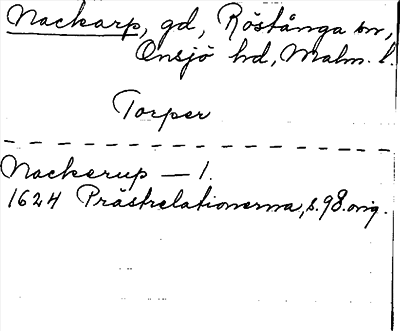 Nackarp, gd, Röstånga sn,
Onsjö hd, Malm. l.
Torper
Nackerup — 1.
1624 Prästrelationerna, s. 98. orig.